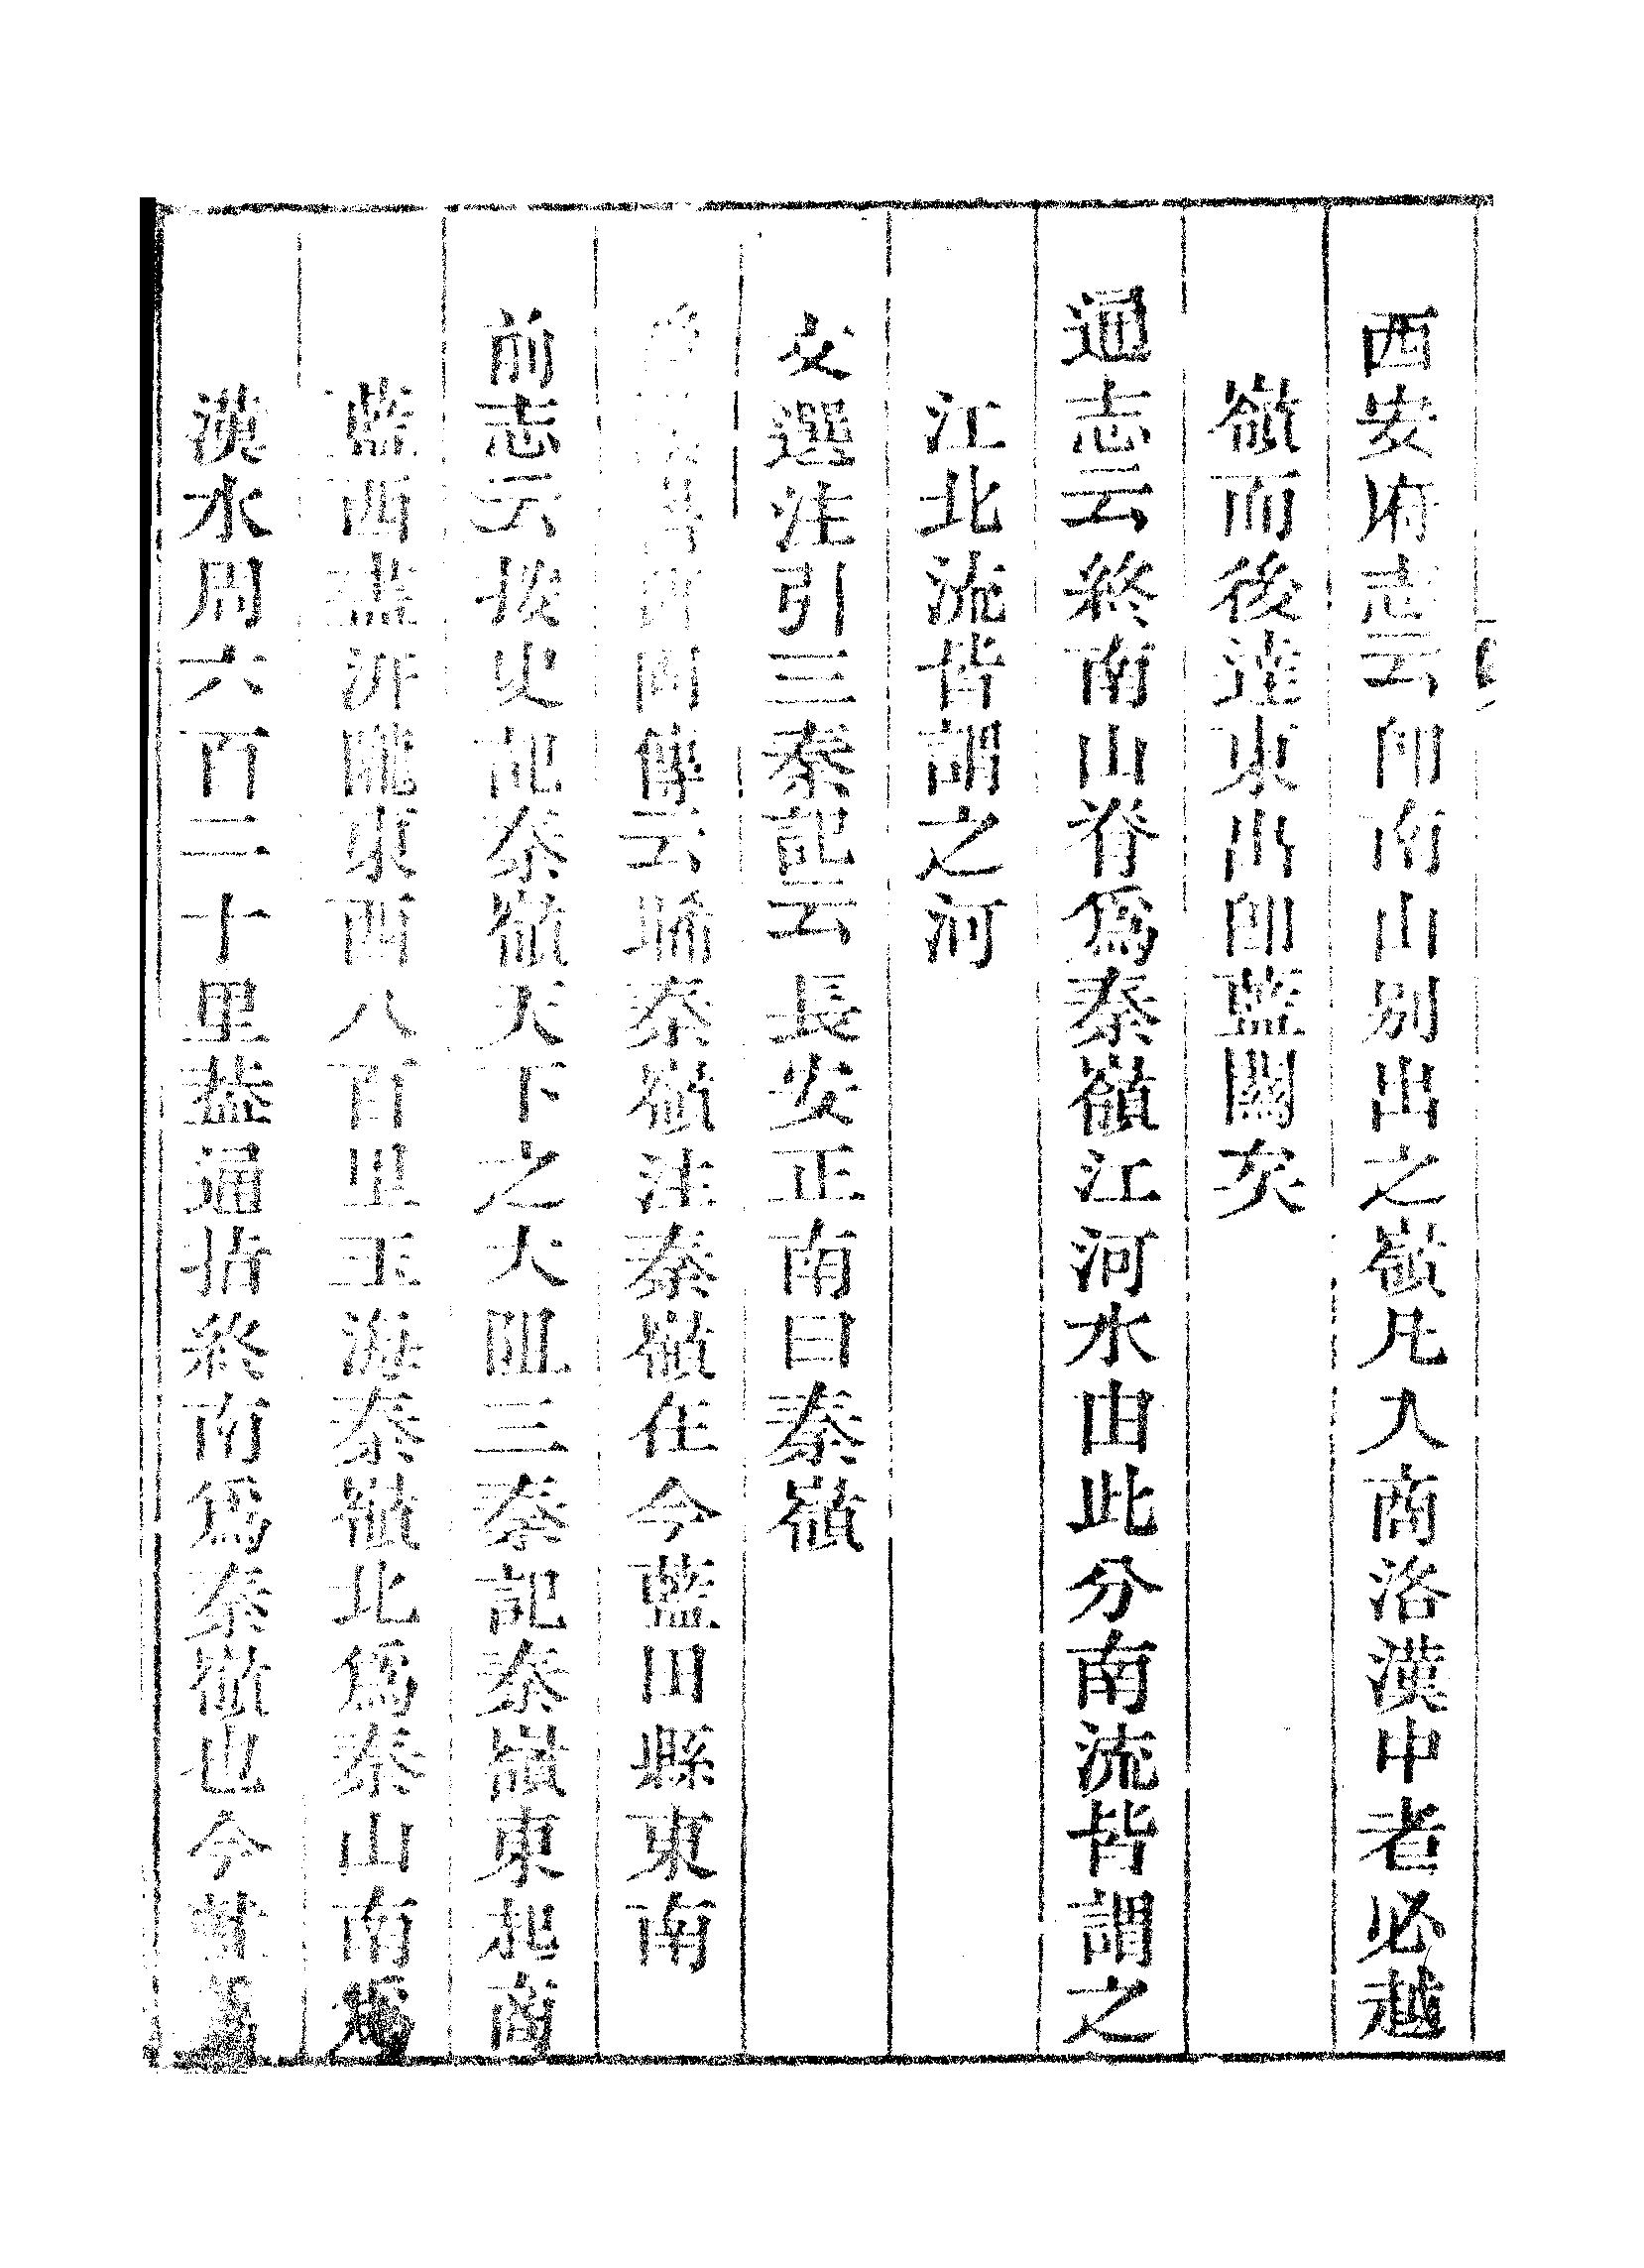 西安府志云即南山别出之嶺凡入商洛漢中者必越
嶺而後達東出即藍關矣
通志云終南山脊爲秦嶺江河水由此分南流皆謂之
江北流皆謂之河
文選注引三秦記云長安正南曰秦嶺
書班固傳云睎秦嶺注秦嶺在今藍田縣東南
前志云按史記秦嶺天下之大阻三秦記秦嶺東起商
藍西盡汧隴東西八百里玉海秦嶺北爲秦山南爲
漢水周六百二十里蓋通指終南爲秦嶺也今